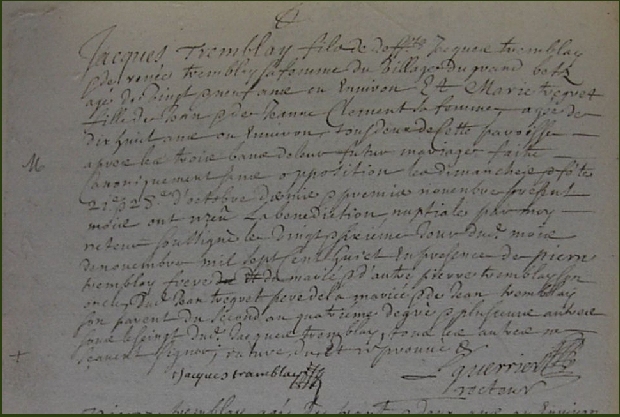 Jacques Tremblay fils de deff.ts Jacques tremblay
& de renée tremblay sa femme du village du grand
agés de vingt & neuf ans ou Environ Et Marie treguet
fille de Jean & de Jeanne Clement sa femme, agée de
dix huit ans ou Environ, tous deux de cette paroisse
apres les trois bans de leur futur mariage faits
canoniquement sans opposition les dimanches & feste
21e & 28e d'octobre & premier novembre present
mois ont receu La benediction nuptiale par moy
recteur soussigné le vingt & sixieme Jour dud. mois
de novembre mil sept cens huict En presence de pierre
tremblay frere du marié & d'autre pierre tremblay son
oncle, dud. Jean treguet pere de la mariée & de Jean tremblay
son parent du second au quatrieme degré & plusieurs autres
sous le seing dud. Jacques tremblay, tous les autres ne
scavent signer,
Jacques tramblay
guerrier
recteur
M
+